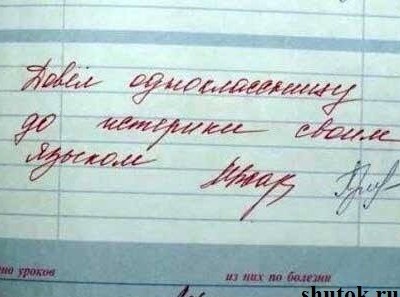 Довёл одноклассницу
до истерики своим
языком
но уроков
из них по болезни
shutok.ru